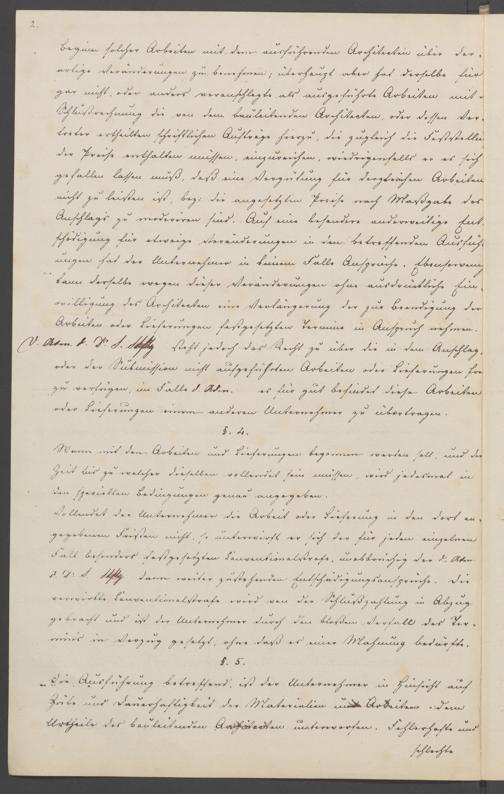 2.
Beginn solcher Arbeiten mit dem ausführenden Architecten über der-
artige Veränderungen zu benehmen; überhaupt aber hat derselbe für
gar nicht, oder anders veranschlagte als ausgeführte Arbeiten mit
Schlußrechnung die von dem bauleitenden Architecten, oder dessen Ver-
treter ertheilten schriftlichen Aufträge hierzu, die zugleich die Feststellung
der Preise enthalten müssen, einzureichen, widrigenfalls er es sich
gefallen lassen muß, daß eine Vergütung für dergleichen Arbeiten
nicht zu leisten ist, bez. die angesetzten Preise nach Maßgabe des
Anschlags zu moderiren sind. Auf eine besondere anderweitige Ent-
schädigung für etwaige Veränderungen in den betreffenden Ausfüh-
rungen hat der Unternehmer in keinem Falle Ansprüche. Ebensowenig
kann derselbe wegen dieser Veränderungen ohne ausdrückliche Ein-
willigung des Architecten eine Verlängerung der zur Beendigung der
Arbeiten oder Lieferungen festgesetzten Termine in Anspruch nehmen.
d. Adm. d. Dr. S. steht jedoch das Recht zu über die in dem Anschlag
oder der Submission nicht aufgeführten Arbeiten oder Lieferungen frei
zu verfügen, im Falle d. Adm. es für gut befindet diese Arbeiten
oder Lieferungen einem anderen Unternehmer zu übertragen.
§. 4.
Wann mit den Arbeiten und Lieferungen begonnen werden soll, und die
Zeit bis zu welcher dieselben vollendet sein müssen, wird jedesmal in
den speciellen Bedingungen genau angegeben.
Vollendet der Unternehmer die Arbeit oder Lieferung in den dort an-
gegebenen Fristen nicht, so unterwirft er sich der für jeden einzelnen
Fall besonders festgesetzten Conventionalstrafe, unabbrüchig der d. Adm.
d. Dr. S. dann weiter zustehenden Entschädigungsansprüche. Die
verwirkte Conventionalstrafe wird von der Schlußzahlung in Abzug
gebracht und ist der Unternehmer durch den bloßen Verfall des Ter-
mins in Verzug gesetzt, ohne daß es einer Mahnung bedürfte.
§. 5.
Die Ausführung betreffend, ist der Unternehmer in Hinsicht auf
Güte und Dauerhaftigkeit der Materialien und Arbeiten dem
Urtheile des bauleitenden Architecten unterworfen. Fehlerhafte und
schlechte